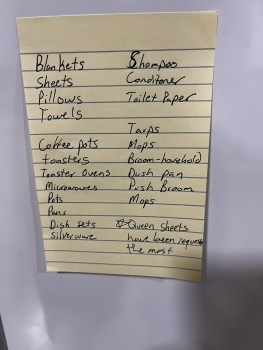 Blankets
Sheets
Pillows
Towels
Coffee pots
toasters
Toaster Ovens
Microwaves
Pots
Pans
Dish sets
silverware
Shampoo
Conditoner
Toilet Paper
Tarps
Mops
Broom-household
Dush pan
Push Broom
Mops
Queen Sheets
have been reques
the most